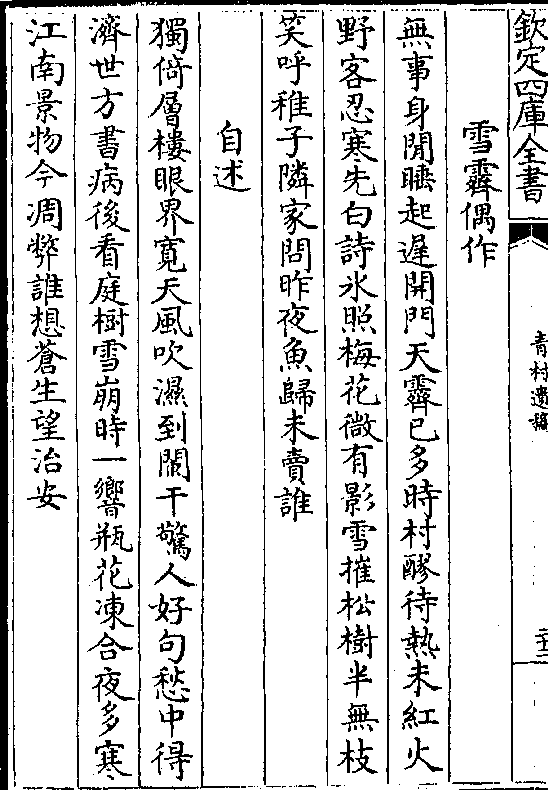 欽定四庫全書
青村遺稿
二十二
雪霽偶作
無事身閒睡起遲開門天霽已多時村醪待熱未紅火
野客忍寒先白詩氷照梅花微有影雪摧松樹半無枝
笑呼稚子隣家問昨夜魚歸未賣誰
自述
獨倚層樓眼界寛天風吹濕到闌干驚人好句愁中得
濟世方書病後看庭樹雪崩時一響瓶花凍合夜多寒
江南景物今凋弊誰想蒼生望治安